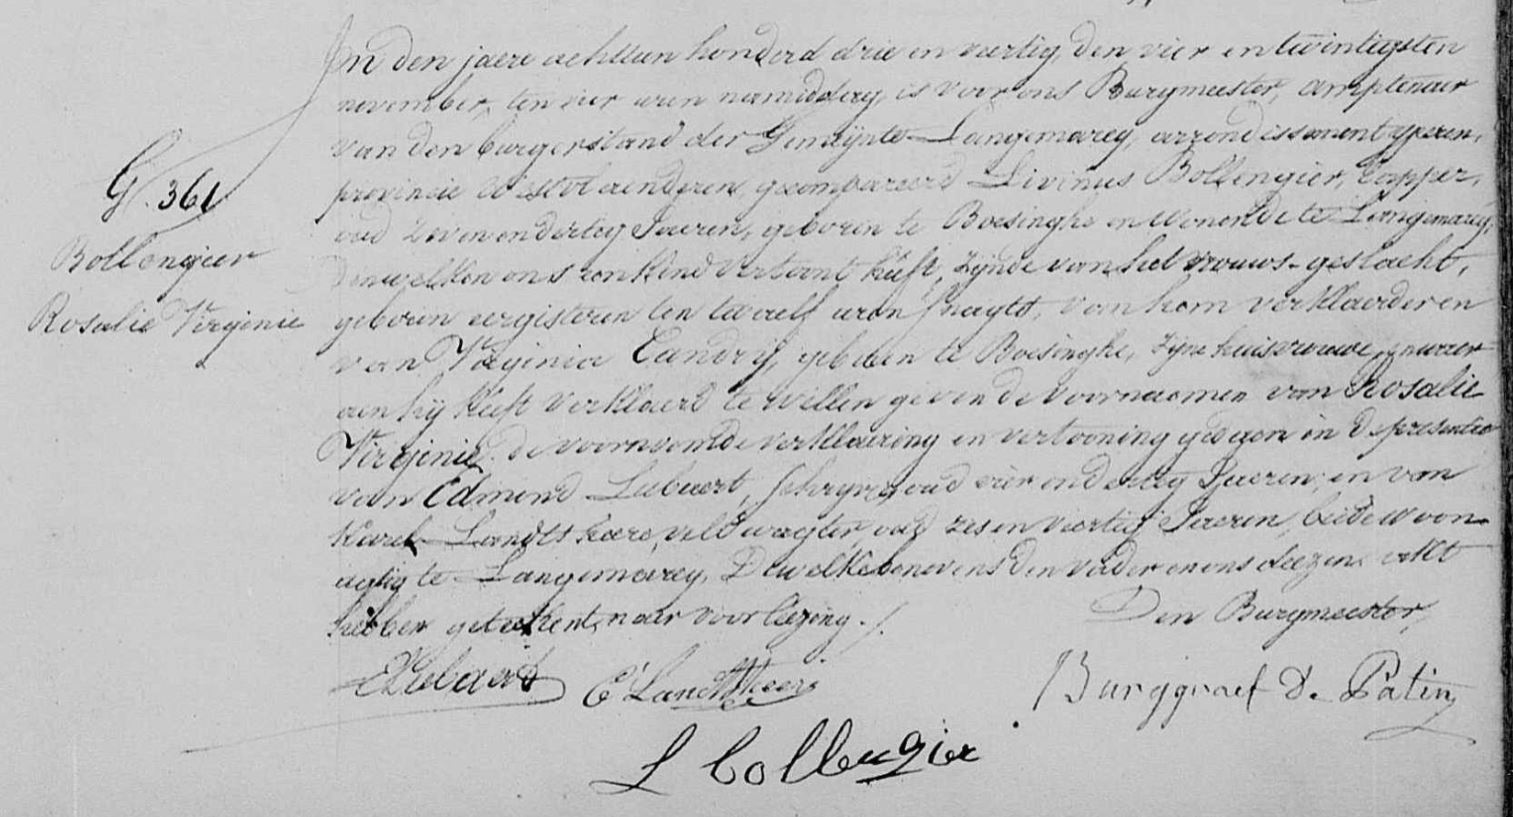 G. 361
Bollengier
Rosalie Virginie
In den jaere achttien honderd drie en veertig, den vier en twintigsten
november, ten vier uren namiddag, is voor ons Burgmeester, amptenaer
van den burgerstand der Gemeynte Langemarcq, arrondissement yperen,
provincie Westvlaenderen, gecompareerd Livinus Bollengier, Tapper,
oud zeven en dertig Jaeren, geboren te Boesinghe en wonende te Langemarcq,
denwelken ons een kind vertoont heeft, zijnde van het vrouws-geslacht,
geboren eergisteren ten twaelf uren snagts, van hem verklaerder en
van Virginia Candry, geboren te Boesinghe, zijne huisvrouwe, en waer
aen hij heeft verklaerd te willen geven de voornaemen van Rosalie
Virginie. de voornoemde verklaering en vertooning gedaen in de presentie
van Edmond Lebaert, schryver, oud vier en dertig Jaeren, en van
Karel Landtsheere, veldwagter, oud zes en viertig Jaeren, beide woon-
agtig te Langemarcq, Dewelke benevens den vader en ons deezen akt
hebben geteekent, naer voorleezing ./.
Den Burgmeester,
E Lebaert
C Landtsheere
Burggraef de Patin
L Bollengier